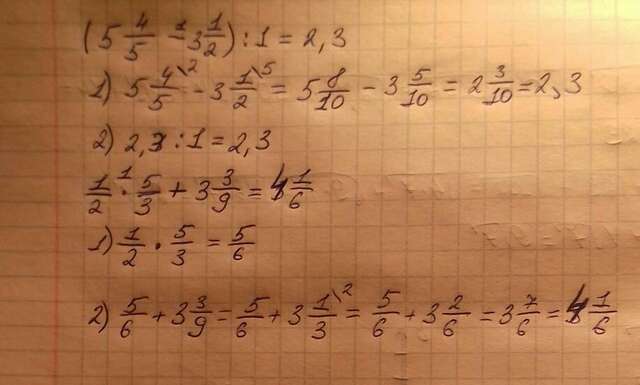 (5 4/5 - 3 1/2) : 1 = 2,3
1) 5 4/5 \2 - 3 1/2 \5 = 5 8/10 - 3 5/10 = 2 3/10 = 2,3
2) 2,3 : 1 = 2,3
1/2 · 5/3 + 3 3/9 = 4 1/6
1) 1/2 · 5/3 = 5/6
2) 5/6 + 3 3/9 = 5/6 + 3 1/3 \2 = 5/6 + 3 2/6 = 3 7/6 = 4 1/6